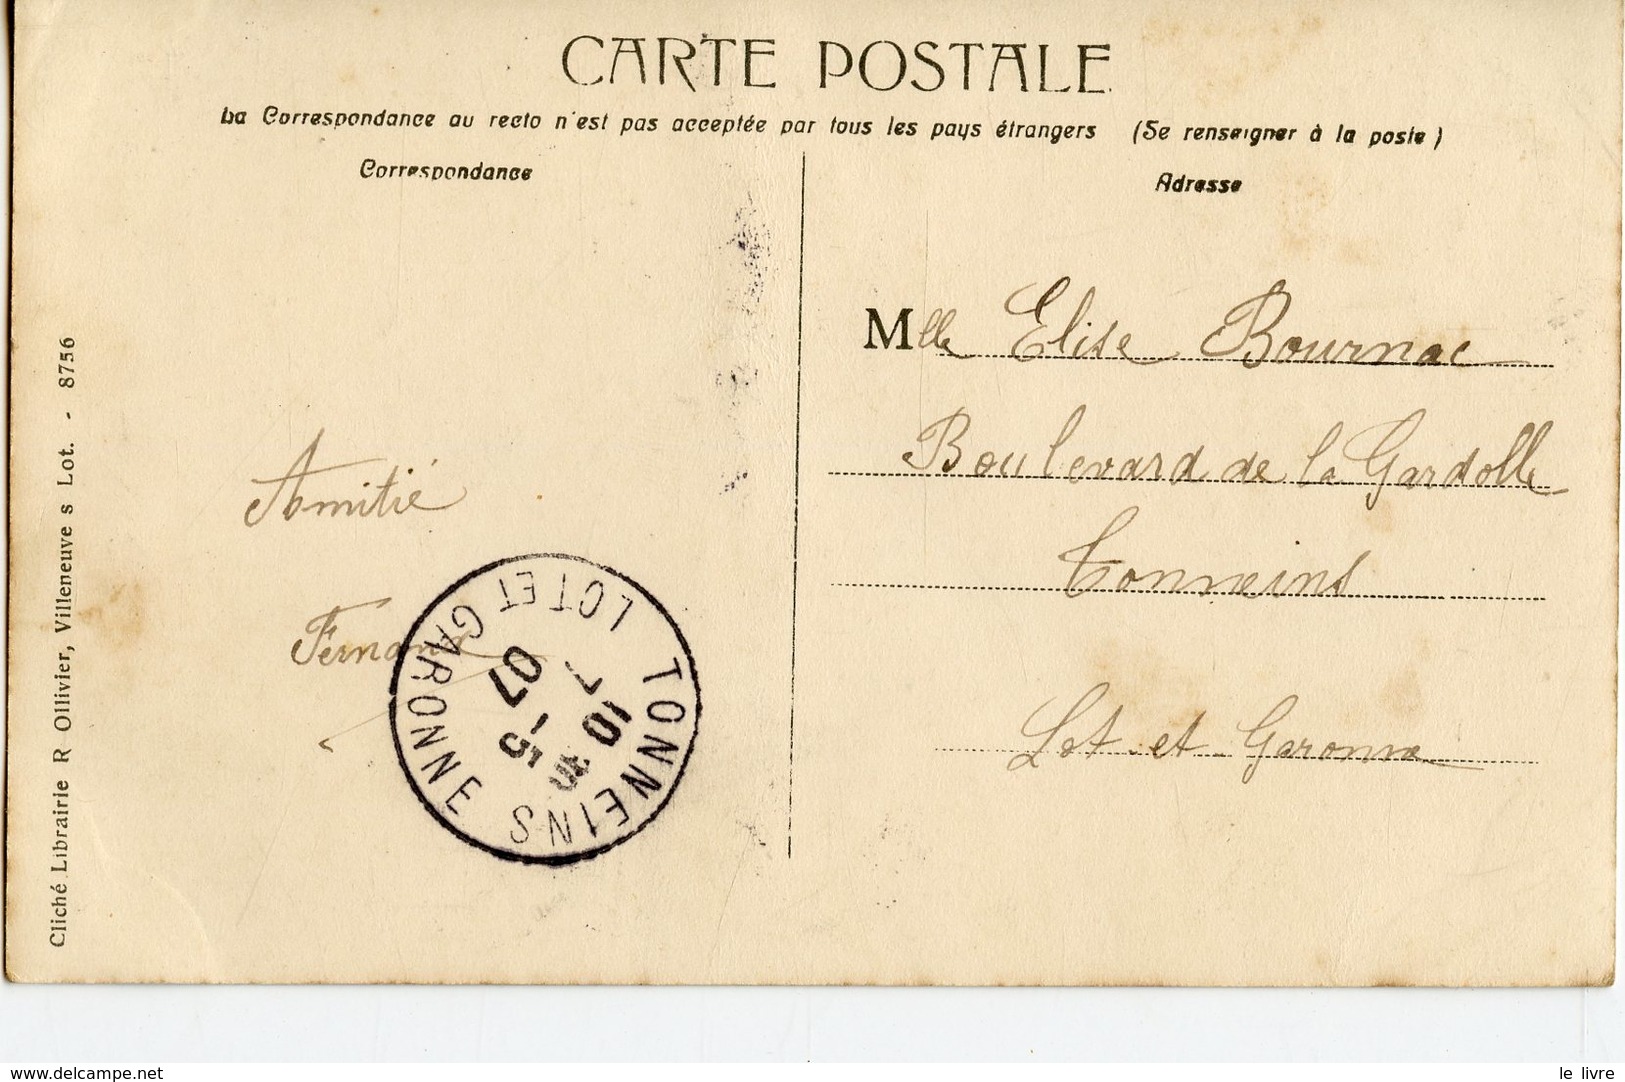 CARTE POSTALE
La Correspondance au recto n'est pas acceptée par tous les pays étrangers (Se renseigner à la poste)
Correspondance
Adresse
Mlle Elise Bournac
Boulevard de la Gardolle
Tonneins
Lot et Garonne
Amitié
Fernand
TONNEINS
LOT ET GARONNE
10
07
Cliché Librairie R Ollivier, Villeneuve s Lot. - 8756
www.delcampe.net
le livre